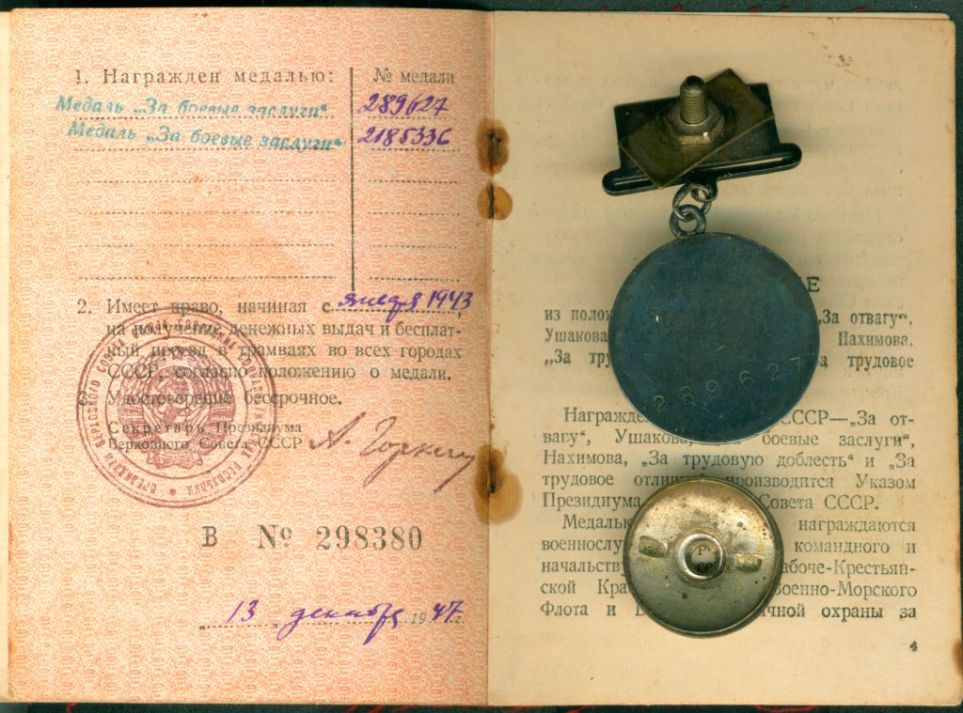 1. Награжден медалью:
№ медали
Медаль „За боевые заслуги“ 289627
Медаль „За боевые заслуги“ 2185336
2. Имеет право, начиная с января 1943,
на получение денежных выдач и бесплат-
ный проезд в трамваях во всех городах
СССР, согласно положению о медали.
Удостоверение бессрочное.
Секретарь Президиума
Верховного Совета СССР А. Горкин
В № 298380
„13 декабря 1947 г.
289627
ИЕ
из поло „За отвагу“,
Ушакова Нахимова,
„За тру трудовое
Награжде СССР—„За от-
вагу“, Ушакова, боевые заслуги“,
Нахимова, „За трудовую доблесть“ и „За
трудовое отличие производится Указом
Президиума Совета СССР.
Медалью награждаются
военнослу командного и
начальств абоче-Крестьян-
ской Кра Военно-Морского
Флота и ичной охраны за
4